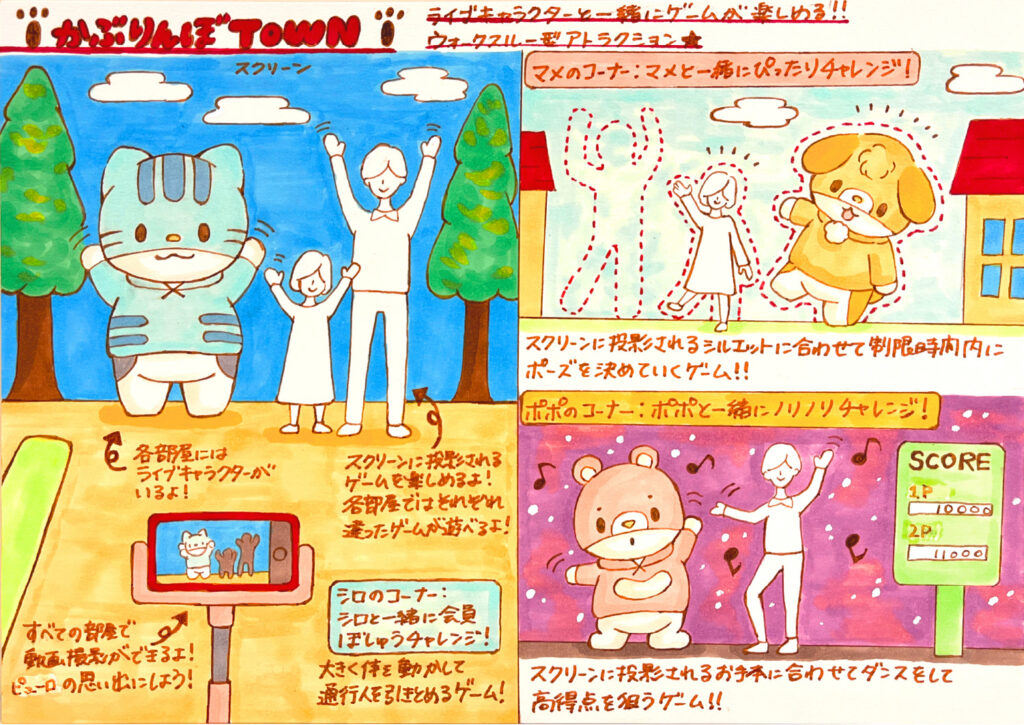 かぶりんぼTOWN
ライブキャラクターと一緒にゲームが楽しめる!!
ウォークスルー型アトラクション★
スクリーン
各部屋には
ライブキャラクターが
いるよ!
スクリーンに投影される
ゲームを楽しめるよ!
各部屋ではそれぞれ
違ったゲームが遊べるよ!
すべての部屋で
動画撮影ができるよ!
ピューロの思い出にしよう!
シロのコーナー:
シロと一緒に会員
ぼしゅうチャレンジ!
大きく体を動かして
通行人を引きとめるゲーム!
マメのコーナー:マメと一緒にぴったりチャレンジ!
スクリーンに投影されるシルエットに合わせて制限時間内に
ポーズを決めていくゲーム!!
ポポのコーナー:ポポと一緒にノリノリチャレンジ!
SCORE
1P
10000
2P
11000
スクリーンに投影されるお手本に合わせてダンスをして
高得点を狙うゲーム!!